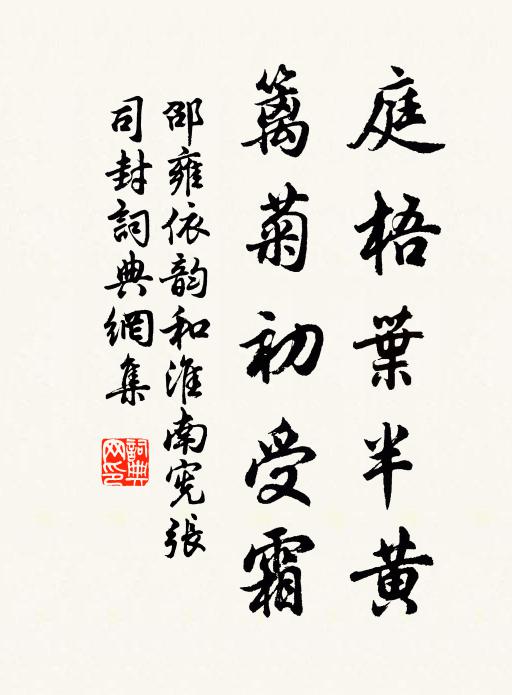 庭梧葉半黃
籬菊初受霜
邵雍依韵和淮南憲張
司封詞典網集
詞典網印